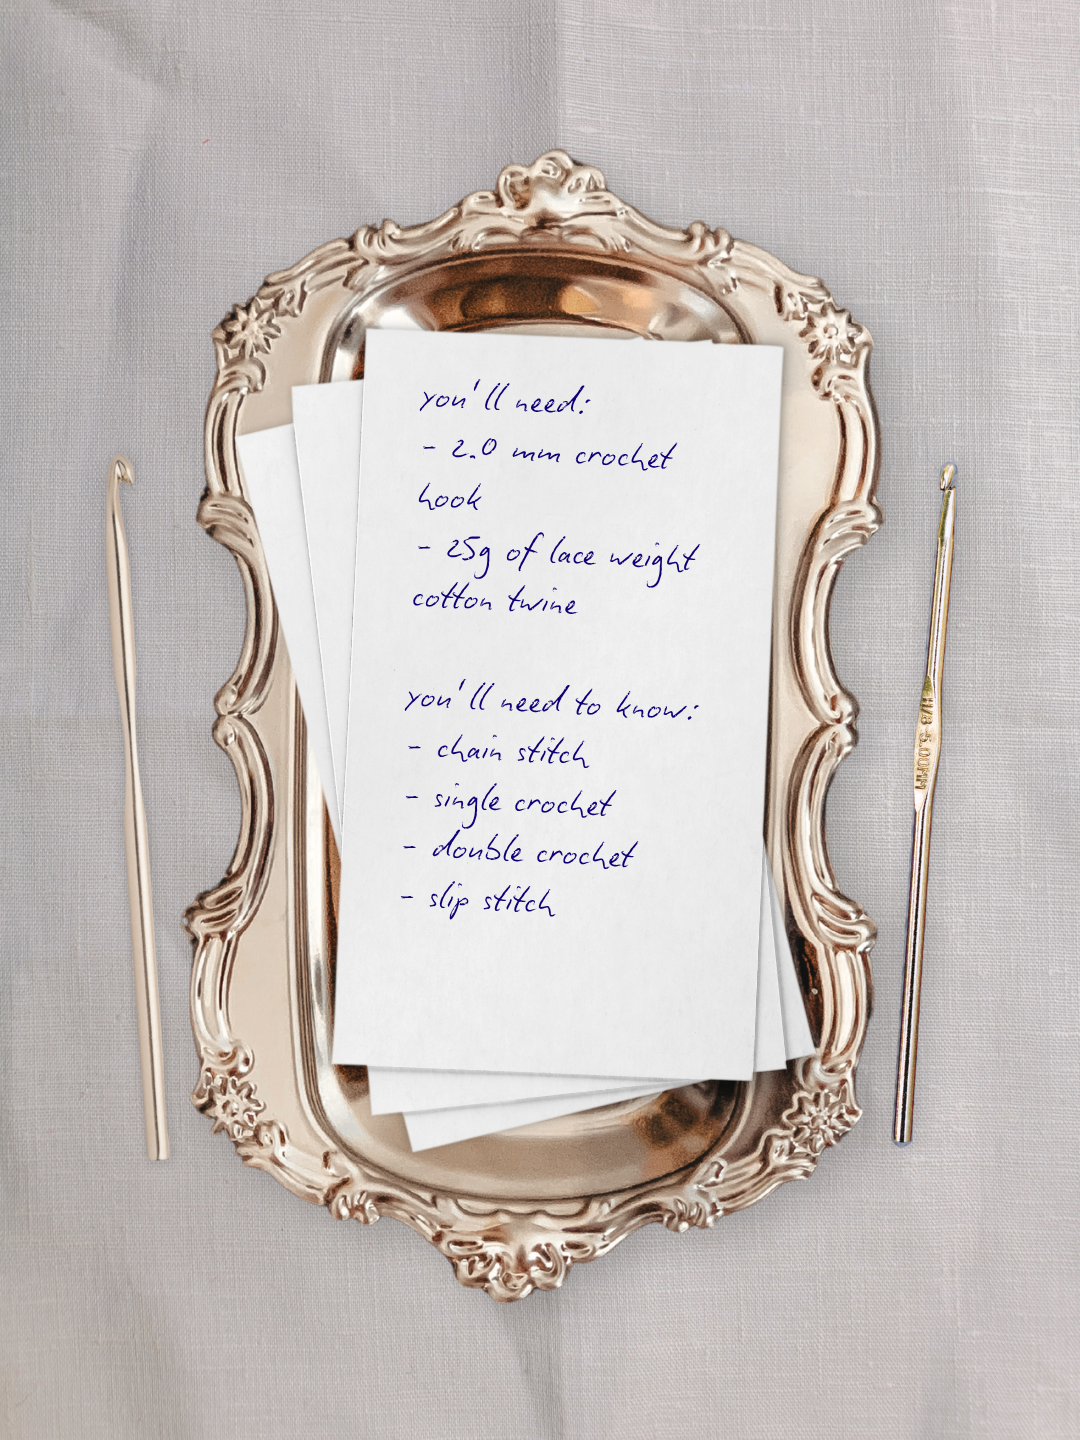 you'll need:
- 2.0 mm crochet
hook
- 25g of lace weight
cotton twine
you'll need to know:
- chain stitch
- single crochet
- double crochet
- slip stitch
H/8-5.00MM